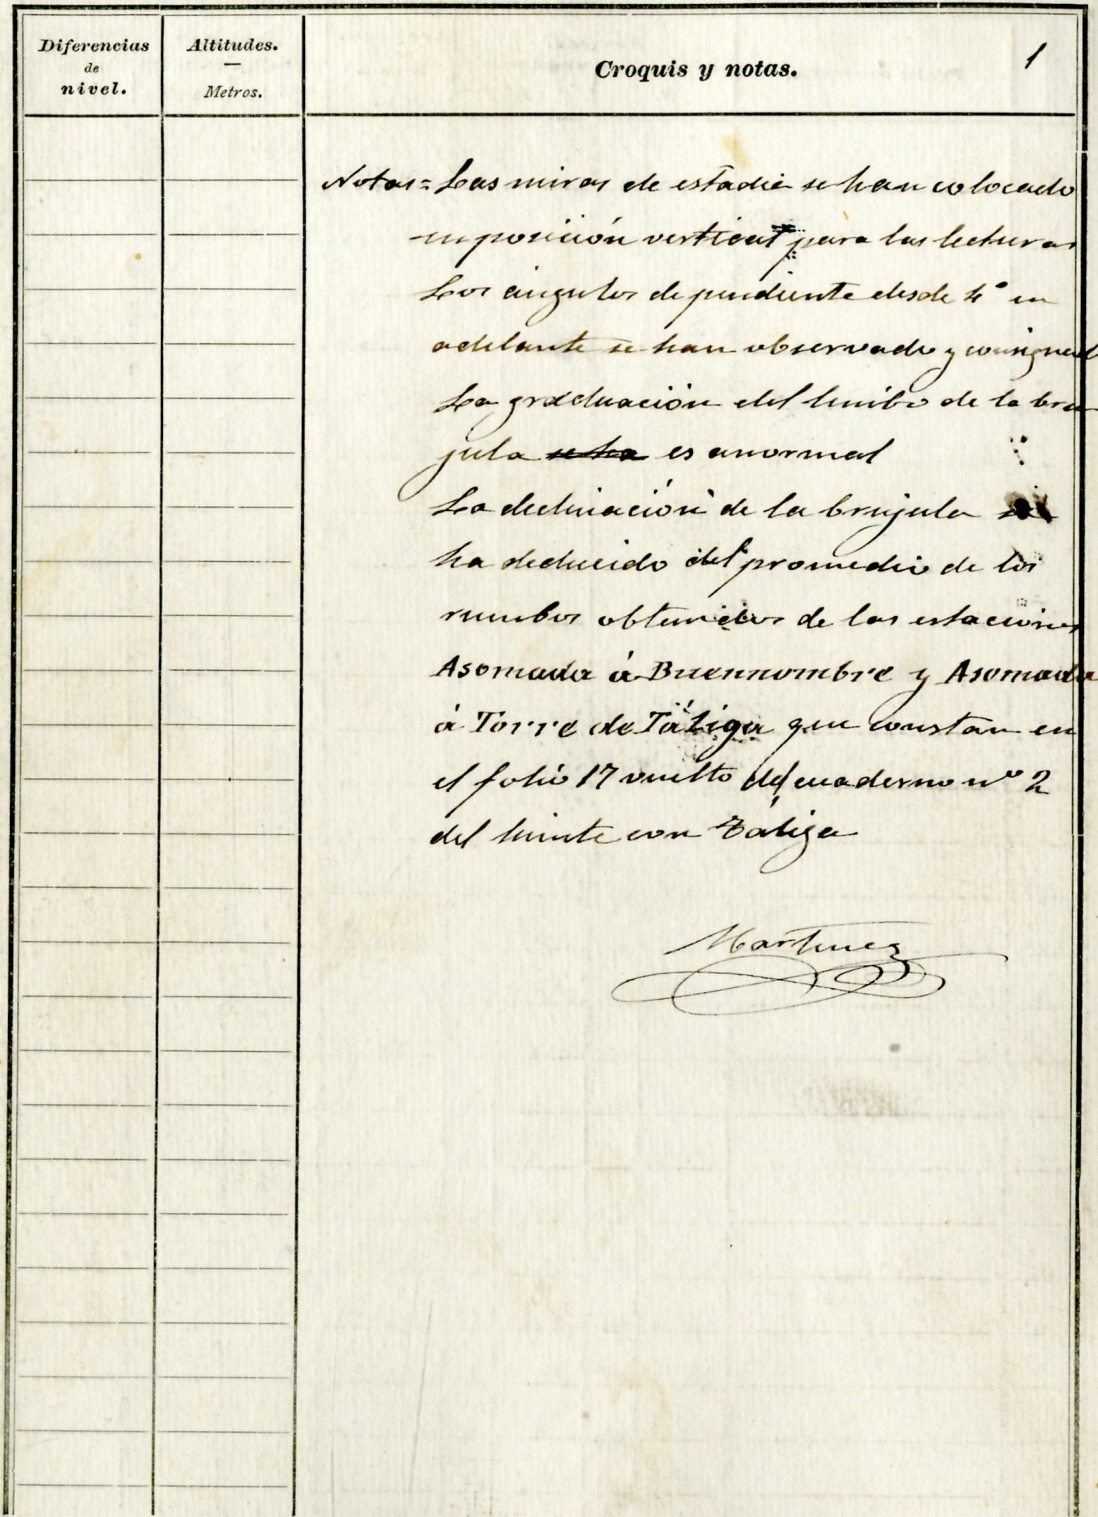 Diferencias
de
nivel.
Altitudes.
Metros.
Croquis y notas.
1
Notas = Las miras de estadia se han colocado
en posición vertical para las lecturas
Los ángulos de pendiente desde 4° en
adelante se han observado y consignad
La graduación del limbo de la bru
jula se ha es anormal
La declinación de la brujula se
ha deducido del promedio de los
rumbos obtenidos de las estaciones
Asomada á Buennombre y Asomada
á Torre de Táliga que constan en
el folio 17 vuelto del cuaderno nº 2
del limite con Táliga
Martinez